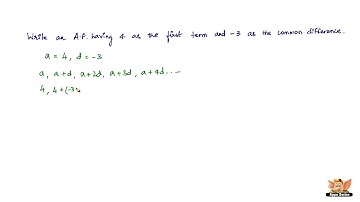 Write an A.P. having 4 as the first term and -3 as the common difference.
a = 4, d = -3
a, a+d, a+2d, a+3d, a+4d.....
4, 4+(-3)